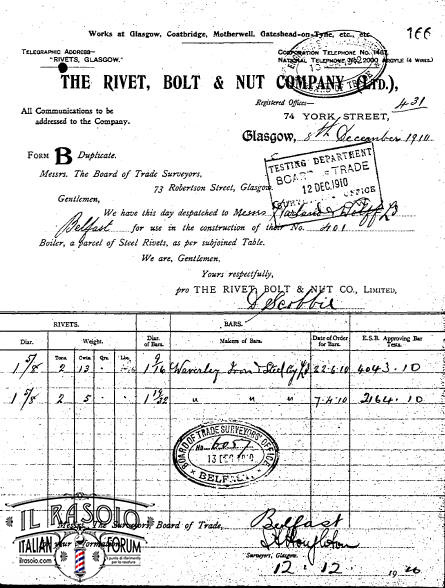 Works at Glasgow, Coatbridge, Motherwell, Gateshead-on-Tyne, etc., etc. 166
TELEGRAPHIC ADDRESS—
"RIVETS, GLASGOW."
CORPORATION TELEPHONE No.
NATIONAL TELEPHONE 2000 ARGYLE (4 WIRES.)
THE RIVET, BOLT & NUT COMPANY (LTD.),
Registered Offices—
431
All Communications to be
addressed to the Company.
74 YORK STREET,
Glasgow, 8th December 1910
FORM B Duplicate.
TESTING DEPARTMENT
BOARD OF TRADE
12 DEC. 1910
SURVEYORS OFFICE
Messrs. The Board of Trade Surveyors,
73 Robertson Street, Glasgow.
Gentlemen,
We have this day despatched to Messrs Harland & Wolff Ld
Belfast for use in the construction of their No. 401
Boiler, a parcel of Steel Rivets, as per subjoined Table.
We are, Gentlemen,
Yours respectfully,
pro THE RIVET BOLT & NUT CO., LIMITED,
D Scobbie
RIVETS. BARS.
Diar. Weight. Diar. of Bars. Makers of Bars. Date of Order for Bars. E.S.B. Approving Bar Tests.
Tons Cwts Qrs. Lbs.
1 5/8 2 13 . 1 9/16 Waverley Iron & Steel Coy Ld 22-6-10 4043.10
1 5/8 2 5 . 1 19/32 " " " 7-4-10 2164.10
BOARD OF TRADE SURVEYORS' OFFICE
No. 6057
13 DEC 1910
BELFAST
The Surveyors, Board of Trade,
Belfast
Surveyors, Glasgow.
12.12. 19
IL RASOIO
ITALIAN FORUM
ilrasoio.com